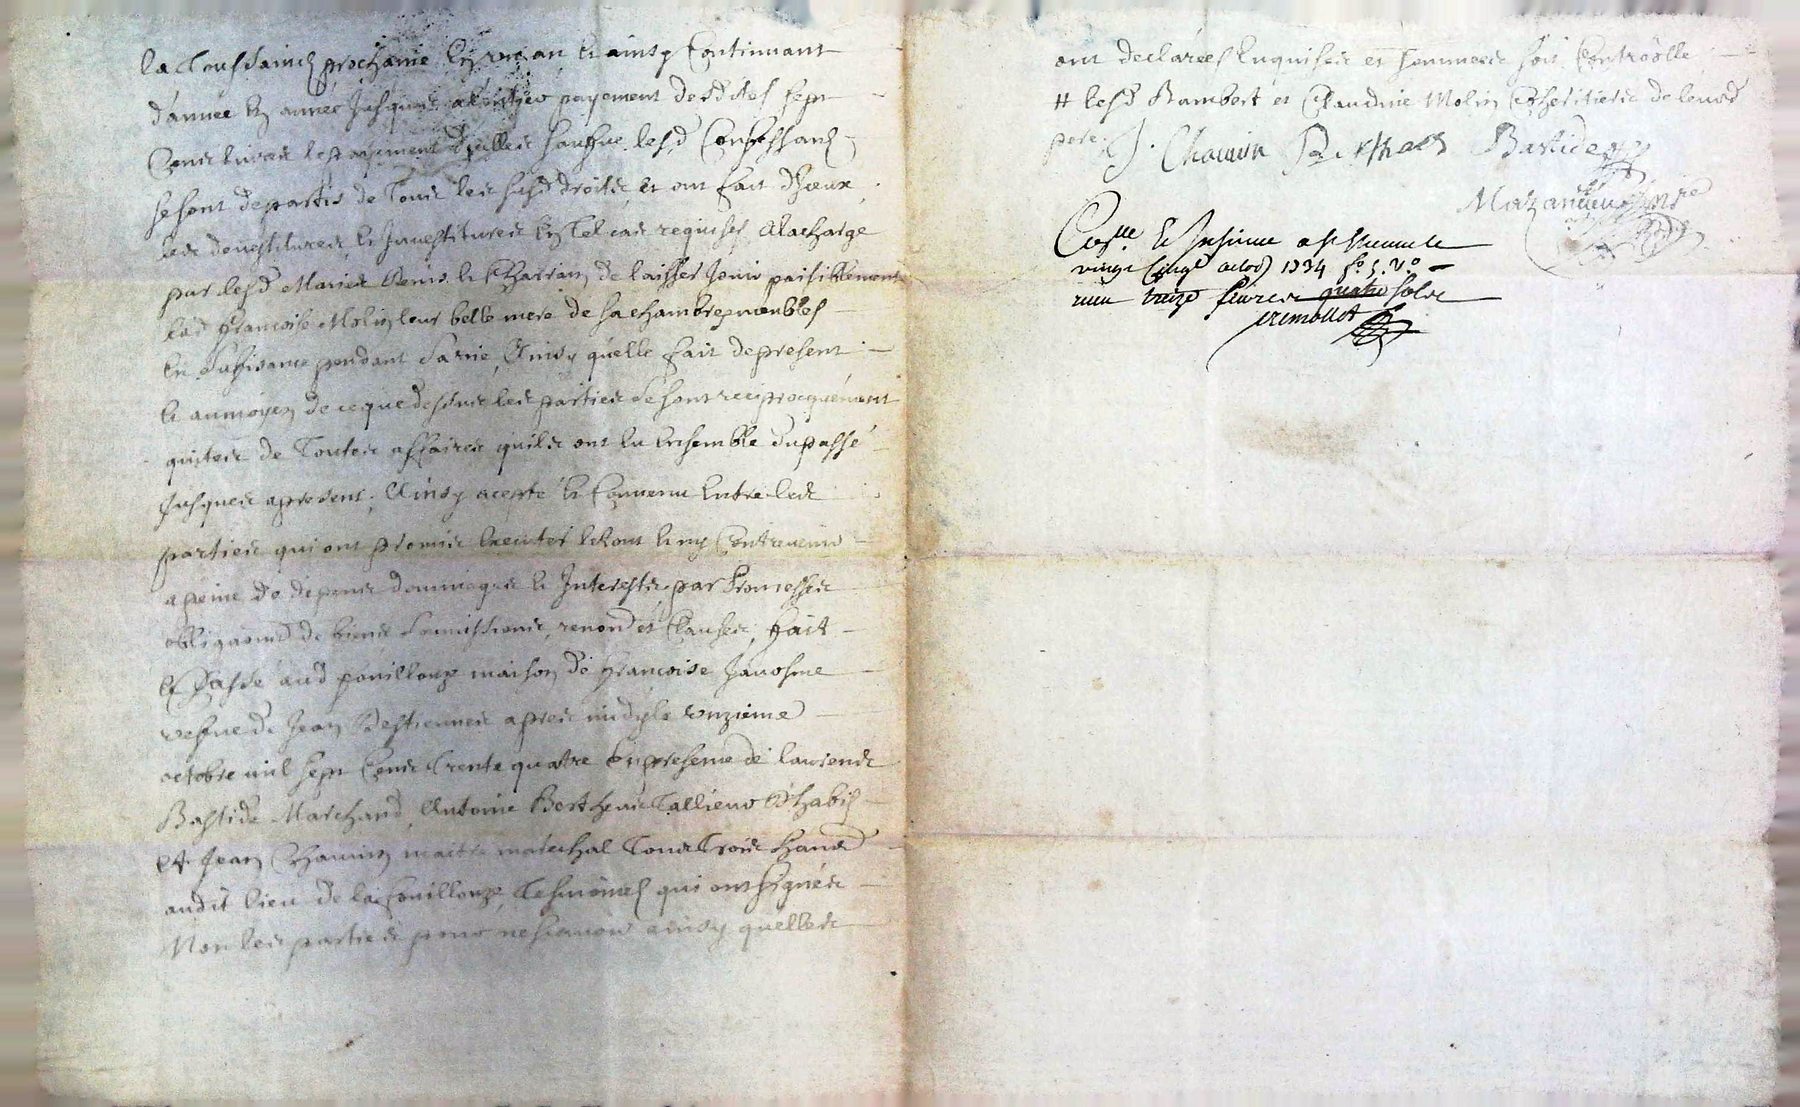 la Toussainct prochaine En un an et ainsy Continuant
d'année En année Jusques a l'entier payement desdites sept
Cens livres le payement d'icelles sauf que lesd Confessants
se sont departis de Tous les susd droits et ont fait d'Iceux
les devestitures et Jnvestitures En Tel cas requises Alacharge
par lesd Maries Benis et Charrain de laisser Jouir paisiblement
lad francoise Molin leur belle mere de sa chambre, meubles
En Jouissance pendant sa vie, Ainsy quelle fait depresent
et aumoyen de ceque dessus les parties se sont reciprocquement
quites de Toutes affaires quils ont Eu Ensemble du passé
Jusques apresent, Ainsy acepté et Convenu Entre les
parties qui ont promis Executer le tout et ny Contrevenir
apeine de dépens dommages et Interests, par Promesses
obligaons de biens soumissions, renond et Clauses, Fait
et Passé aud fouillouze maison de francoise Javosme
vesfue de Jean Destiennes apres midy le unzieme
octobre mil sept Cens Trente quatre En presence de laurens
Bastide Marchand, Antoine Bertheas Tallieur d'habis
et Jean Chauvin maitre marechal Tous Trois hand
audit lieu de la fouillouze, Tesmoings qui ont signés
Non les parties pour nescavoir ainsy quelles
ont declarées Enquises et sommees soit Controlle
# lesd Rambert et Claudine Molin Coheritiers de leurd
pere
J. Chauvin Bertheas Bastide
Mazancieu No.re
Con.lle Et Insinué a St Rambert le
vingt Cinq octob 1734 fo. 5. Vo.
receu treize livres quatre sols
cremollet